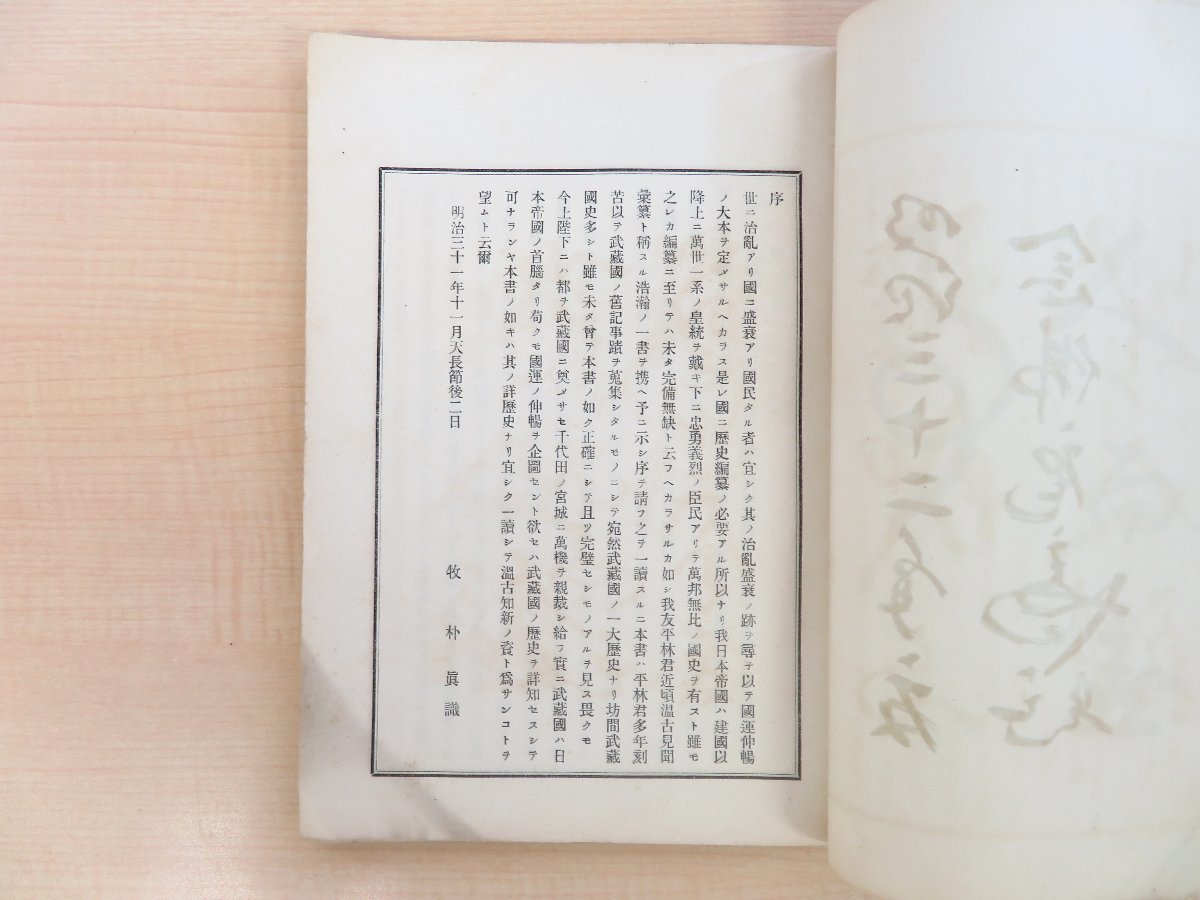 序
世ニ治亂アリ國ニ盛衰アリ國民タル者ハ宜シク其ノ治亂盛衰ノ跡ヲ尋テ以テ國運伸暢
ノ大本ヲ定メサルヘカラス是レ國ニ歷史編纂ノ必要アル所以ナリ我日本帝國ハ建國以
降上ニ萬世一系ノ皇統ヲ戴キ下ニ忠勇義烈ノ臣民アリテ萬邦無比ノ國史ヲ有スト雖モ
之レカ編纂ニ至リテハ未タ完備無缺ト云フヘカラサルカ如シ我友平林君近頃温古見聞
彙纂ト稱スル浩瀚ノ一書ヲ携ヘ予ニ示シ序ヲ請フ之ヲ一讀スルニ本書ハ平林君多年刻
苦以テ武藏國ノ舊記事蹟ヲ蒐集シタルモノニシテ宛然武藏國ノ一大歷史ナリ坊間武藏
國史多シト雖モ未タ曾テ本書ノ如ク正確ニシテ且ツ完璧セシモノアルヲ見ス畏クモ
今上陛下ニハ都ヲ武藏國ニ奠メサセ千代田ノ宮城ニ萬機ヲ親裁シ給フ實ニ武藏國ハ日
本帝國ノ首腦タリ苟クモ國運ノ伸暢ヲ企圖セント欲セハ武藏國ノ歷史ヲ詳知セスシテ
可ナランヤ本書ノ如キハ其ノ詳歷史ナリ宜シク一讀シテ溫古知新ノ資ト爲サンコトヲ
望ムト云爾
明治三十一年十一月天長節後二日
牧朴眞識